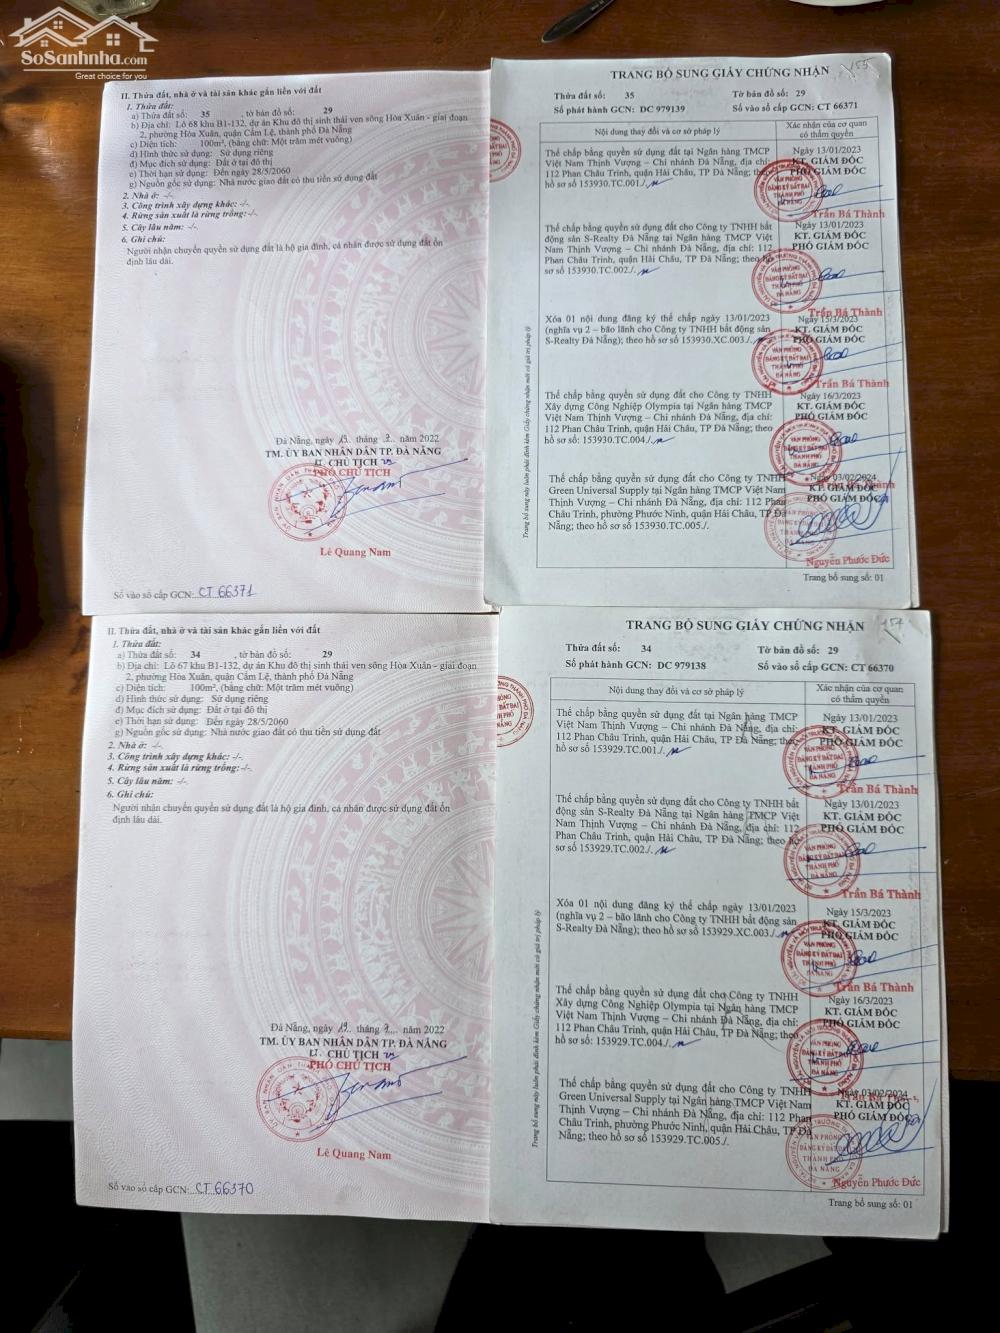 SoSanhnha.com
Great choice for you
II. Thửa đất, nhà ở và tài sản khác gắn liền với đất
1. Thửa đất:
a) Thửa đất số: 35 , tờ bản đồ số: 29
b) Địa chỉ: Lô 68 khu B1-132, dự án Khu đô thị sinh thái ven sông Hòa Xuân - giai đoạn
2, phường Hòa Xuân, quận Cẩm Lệ, thành phố Đà Nẵng
c) Diện tích: 100m², (bằng chữ: Một trăm mét vuông)
d) Hình thức sử dụng: Sử dụng riêng
đ) Mục đích sử dụng: Đất ở tại đô thị
e) Thời hạn sử dụng: Đến ngày 28/5/2060
g) Nguồn gốc sử dụng: Nhà nước giao đất có thu tiền sử dụng đất
2. Nhà ở: -/-.
3. Công trình xây dựng khác: -/-.
4. Rừng sản xuất là rừng trồng: -/-.
5. Cây lâu năm: -/-.
6. Ghi chú:
Người nhận chuyển quyền sử dụng đất là hộ gia đình, cá nhân được sử dụng đất ổn
định lâu dài.
Đà Nẵng, ngày 19 tháng 7 năm 2022
TM. ỦY BAN NHÂN DÂN TP. ĐÀ NẴNG
KT. CHỦ TỊCH
PHÓ CHỦ TỊCH
Lê Quang Nam
Số vào sổ cấp GCN: CT 66371
TRANG BỔ SUNG GIẤY CHỨNG NHẬN
155
Thửa đất số: 35 Tờ bản đồ số: 29
Số phát hành GCN: DC 979139 Số vào sổ cấp GCN: CT 66371
Nội dung thay đổi và cơ sở pháp lý
Xác nhận của cơ quan
có thẩm quyền
Thế chấp bằng quyền sử dụng đất tại Ngân hàng TMCP
Việt Nam Thịnh Vượng – Chi nhánh Đà Nẵng, địa chỉ:
112 Phan Châu Trinh, quận Hải Châu, TP Đà Nẵng; theo
hồ sơ số 153930.TC.001./.
Ngày 13/01/2023
KT. GIÁM ĐỐC
PHÓ GIÁM ĐỐC
Trần Bá Thành
Thế chấp bằng quyền sử dụng đất cho Công ty TNHH bất
động sản S-Realty Đà Nẵng tại Ngân hàng TMCP Việt
Nam Thịnh Vượng – Chi nhánh Đà Nẵng, địa chỉ: 112
Phan Châu Trinh, quận Hải Châu, TP Đà Nẵng; theo hồ
sơ số 153930.TC.002./.
Ngày 13/01/2023
KT. GIÁM ĐỐC
PHÓ GIÁM ĐỐC
Trần Bá Thành
Xóa 01 nội dung đăng ký thế chấp ngày 13/01/2023
(nghĩa vụ 2 – bão lãnh cho Công ty TNHH bất động sản
S-Realty Đà Nẵng); theo hồ sơ số 153930.XC.003./.
Ngày 15/3/2023
KT. GIÁM ĐỐC
PHÓ GIÁM ĐỐC
Trần Bá Thành
Thế chấp bằng quyền sử dụng đất cho Công ty TNHH
Xây dựng Công Nghiệp Olympia tại Ngân hàng TMCP
Việt Nam Thịnh Vượng – Chi nhánh Đà Nẵng, địa chỉ:
112 Phan Châu Trinh, quận Hải Châu, TP Đà Nẵng; theo
hồ sơ số 153930.TC.004./.
Ngày 16/3/2023
KT. GIÁM ĐỐC
PHÓ GIÁM ĐỐC
Trần Bá Thành
Thế chấp bằng quyền sử dụng đất cho Công ty TNHH
Green Universal Supply tại Ngân hàng TMCP Việt Nam
Thịnh Vượng – Chi nhánh Đà Nẵng, địa chỉ: 112 Phan
Châu Trinh, phường Phước Ninh, quận Hải Châu, TP Đà
Nẵng; theo hồ sơ số 153930.TC.005./.
Ngày 03/02/2024
KT. GIÁM ĐỐC
PHÓ GIÁM ĐỐC
Nguyễn Phước Đức
Trang bổ sung này luôn phải đính kèm Giấy chứng nhận mới có giá trị pháp lý
Trang bổ sung số: 01
II. Thửa đất, nhà ở và tài sản khác gắn liền với đất
1. Thửa đất:
a) Thửa đất số: 34 , tờ bản đồ số: 29
b) Địa chỉ: Lô 67 khu B1-132, dự án Khu đô thị sinh thái ven sông Hòa Xuân - giai đoạn
2, phường Hòa Xuân, quận Cẩm Lệ, thành phố Đà Nẵng
c) Diện tích: 100m², (bằng chữ: Một trăm mét vuông)
d) Hình thức sử dụng: Sử dụng riêng
đ) Mục đích sử dụng: Đất ở tại đô thị
e) Thời hạn sử dụng: Đến ngày 28/5/2060
g) Nguồn gốc sử dụng: Nhà nước giao đất có thu tiền sử dụng đất
2. Nhà ở: -/-.
3. Công trình xây dựng khác: -/-.
4. Rừng sản xuất là rừng trồng: -/-.
5. Cây lâu năm: -/-.
6. Ghi chú:
Người nhận chuyển quyền sử dụng đất là hộ gia đình, cá nhân được sử dụng đất ổn
định lâu dài.
Đà Nẵng, ngày 19 tháng 7 năm 2022
TM. ỦY BAN NHÂN DÂN TP. ĐÀ NẴNG
KT. CHỦ TỊCH
PHÓ CHỦ TỊCH
Lê Quang Nam
Số vào sổ cấp GCN: CT 66370
TRANG BỔ SUNG GIẤY CHỨNG NHẬN
Thửa đất số: 34 Tờ bản đồ số: 29
Số phát hành GCN: DC 979138 Số vào sổ cấp GCN: CT 66370
Nội dung thay đổi và cơ sở pháp lý
Xác nhận của cơ quan
có thẩm quyền
Thế chấp bằng quyền sử dụng đất tại Ngân hàng TMCP
Việt Nam Thịnh Vượng – Chi nhánh Đà Nẵng, địa chỉ: 112
Phan Châu Trinh, quận Hải Châu, TP Đà Nẵng; theo
hồ sơ số 153929.TC.001./.
Ngày 13/01/2023
KT. GIÁM ĐỐC
PHÓ GIÁM ĐỐC
Trần Bá Thành
Thế chấp bằng quyền sử dụng đất cho Công ty TNHH bất
động sản S-Realty Đà Nẵng tại Ngân hàng TMCP Việt
Nam Thịnh Vượng – Chi nhánh Đà Nẵng, địa chỉ: 112
Phan Châu Trinh, quận Hải Châu, TP Đà Nẵng; theo hồ
sơ số 153929.TC.002./.
Ngày 13/01/2023
KT. GIÁM ĐỐC
PHÓ GIÁM ĐỐC
Trần Bá Thành
Xóa 01 nội dung đăng ký thế chấp ngày 13/01/2023
(nghĩa vụ 2 – bão lãnh cho Công ty TNHH bất động sản
S-Realty Đà Nẵng); theo hồ sơ số 153929.XC.003./.
Ngày 15/3/2023
KT. GIÁM ĐỐC
PHÓ GIÁM ĐỐC
Trần Bá Thành
Thế chấp bằng quyền sử dụng đất cho Công ty TNHH
Xây dựng Công Nghiệp Olympia tại Ngân hàng TMCP
Việt Nam Thịnh Vượng – Chi nhánh Đà Nẵng, địa chỉ:
112 Phan Châu Trinh, quận Hải Châu, TP Đà Nẵng; theo
hồ sơ số 153929.TC.004./.
Ngày 16/3/2023
KT. GIÁM ĐỐC
PHÓ GIÁM ĐỐC
Thế chấp bằng quyền sử dụng đất cho Công ty TNHH
Green Universal Supply tại Ngân hàng TMCP Việt Nam
Thịnh Vượng – Chi nhánh Đà Nẵng, địa chỉ: 112 Phan
Châu Trinh, phường Phước Ninh, quận Hải Châu, TP Đà
Nẵng; theo hồ sơ số 153929.TC.005./.
Ngày 03/02/2024
KT. GIÁM ĐỐC
PHÓ GIÁM ĐỐC
Nguyễn Phước Đức
Trang bổ sung này luôn phải đính kèm Giấy chứng nhận mới có giá trị pháp lý
Trang bổ sung số: 01